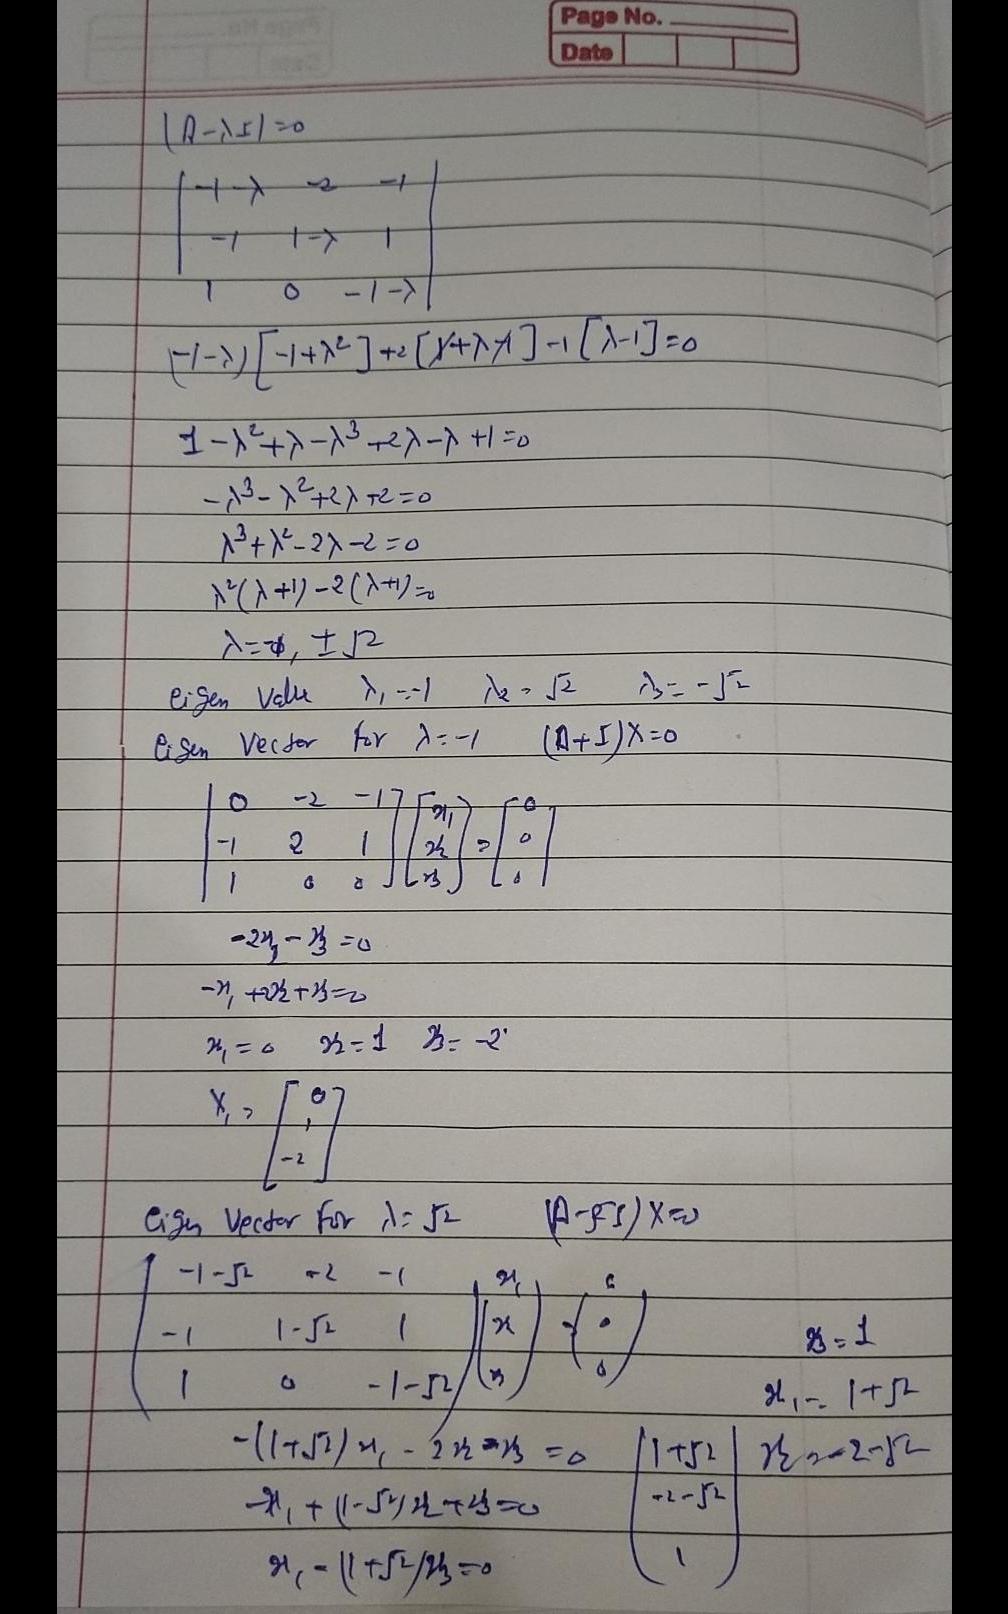 Page No.
Date
|A-λI|=0
| -1-λ -2 -1 |
| -1 1-λ 1 |
| 1 0 -1-λ |
(-1-λ)[-1+λ²]+2[1+λ-1]-1[λ-1]=0
1-λ²+λ-λ³+2λ-λ+1=0
-λ³-λ²+2λ+2=0
λ³+λ²-2λ-2=0
λ²(λ+1)-2(λ+1)=0
λ=-1, ±√2
eigen value λ₁=-1 λ₂=√2 λ₃=-√2
eigen vector for λ=-1 (A+I)X=0
[ 0 -2 -1 ] [ x₁ ] = [ 0 ]
[ -1 2 1 ] [ x₂ ] [ 0 ]
[ 1 0 0 ] [ x₃ ] [ 0 ]
-2x₂-x₃=0
-x₁+2x₂+x₃=0
x₁=0 x₂=1 x₃=-2
X₁= [ 0
1
-2 ]
eigen vector for λ=√2 (A-√2I)X=0
( -1-√2 -2 -1 ) ( x₁ ) = ( 0 )
( -1 1-√2 1 ) ( x ) ( 0 )
( 1 0 -1-√2 ) ( x₃ ) ( 0 )
x₃=1
x₁=1+√2
x₂=-2-√2
-(1+√2)x₁-2x₂-x₃=0
-x₁+(1-√2)x₂+x₃=0
x₁-(1+√2)x₃=0
( 1+√2
-2-√2
1 )